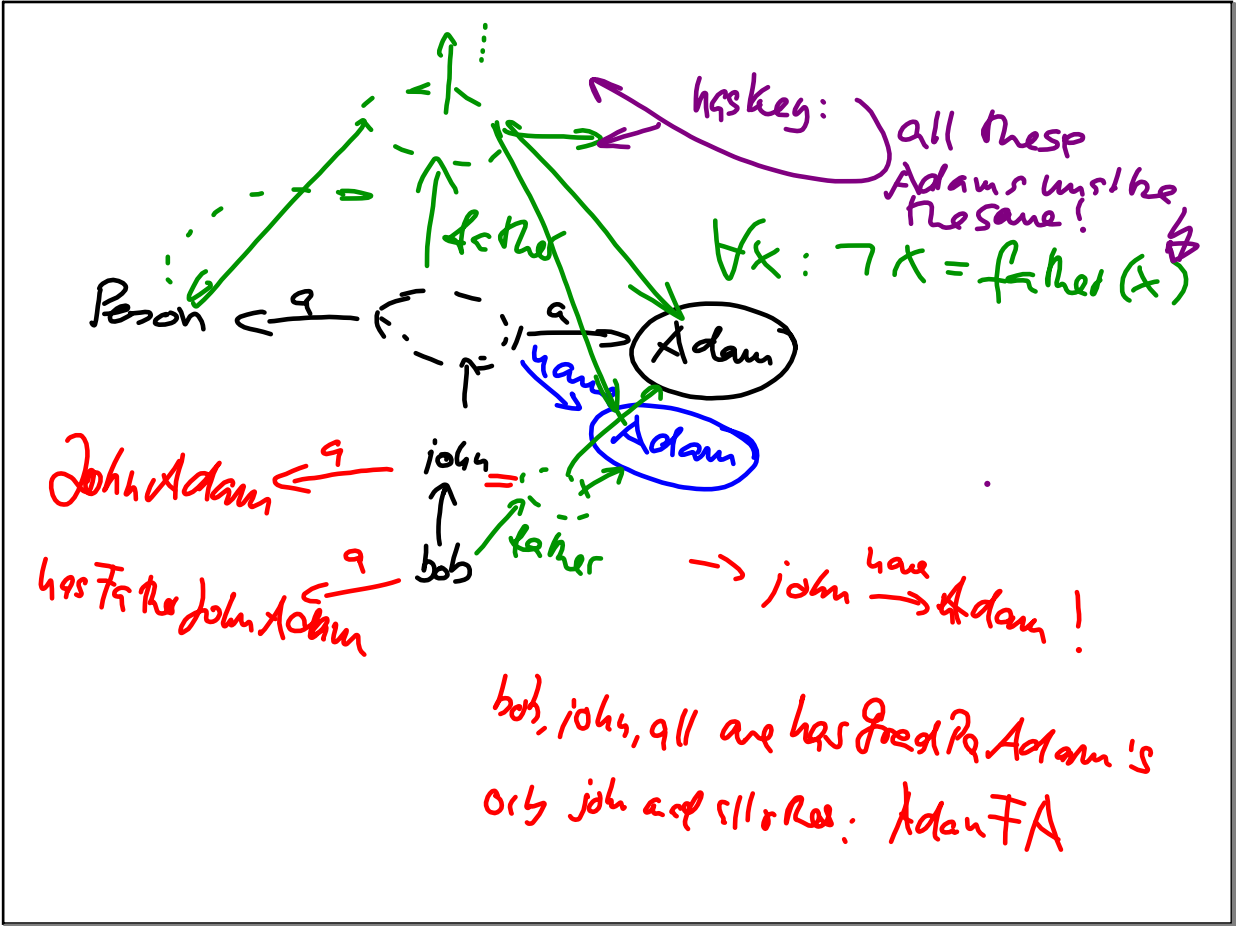 hasKey:
all these
Adams must be
the same!
father
∀x : ¬ x = father (x)
Person
a
a
Adam
name
Adam
john
=
JohnAdam
a
bob
father
hasFatherJohnAdam
a
→ john name → Adam !
bob, john, all are hasGrandPa Adam's
only john and all other: AdamFA